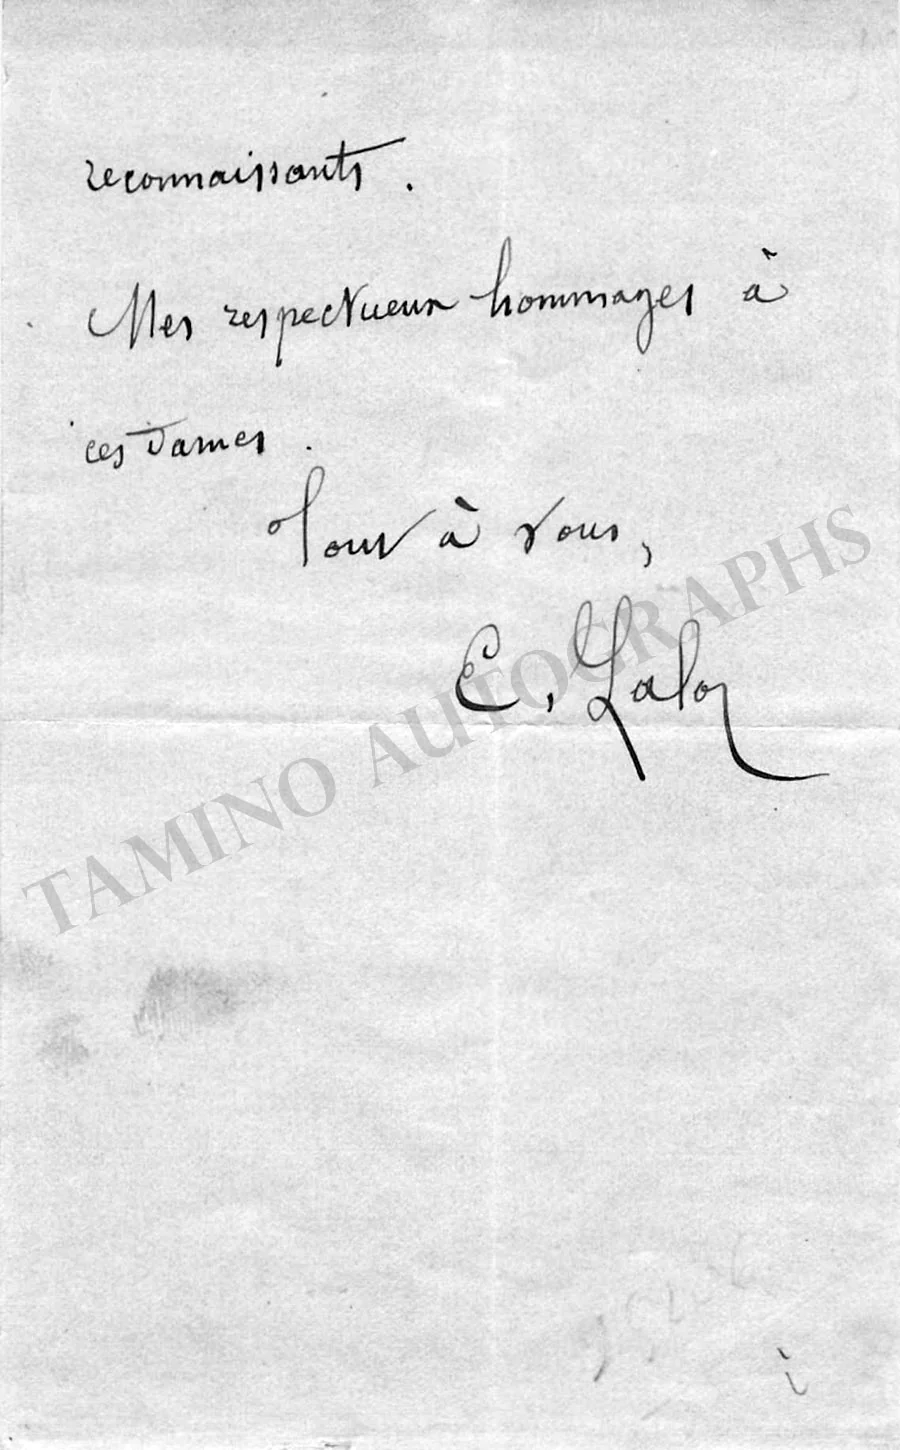 reconnaissants.
Mes respectueux hommages à
ces Dames.
Tout à vous,
E. Lalo
TAMINO AUTOGRAPHS